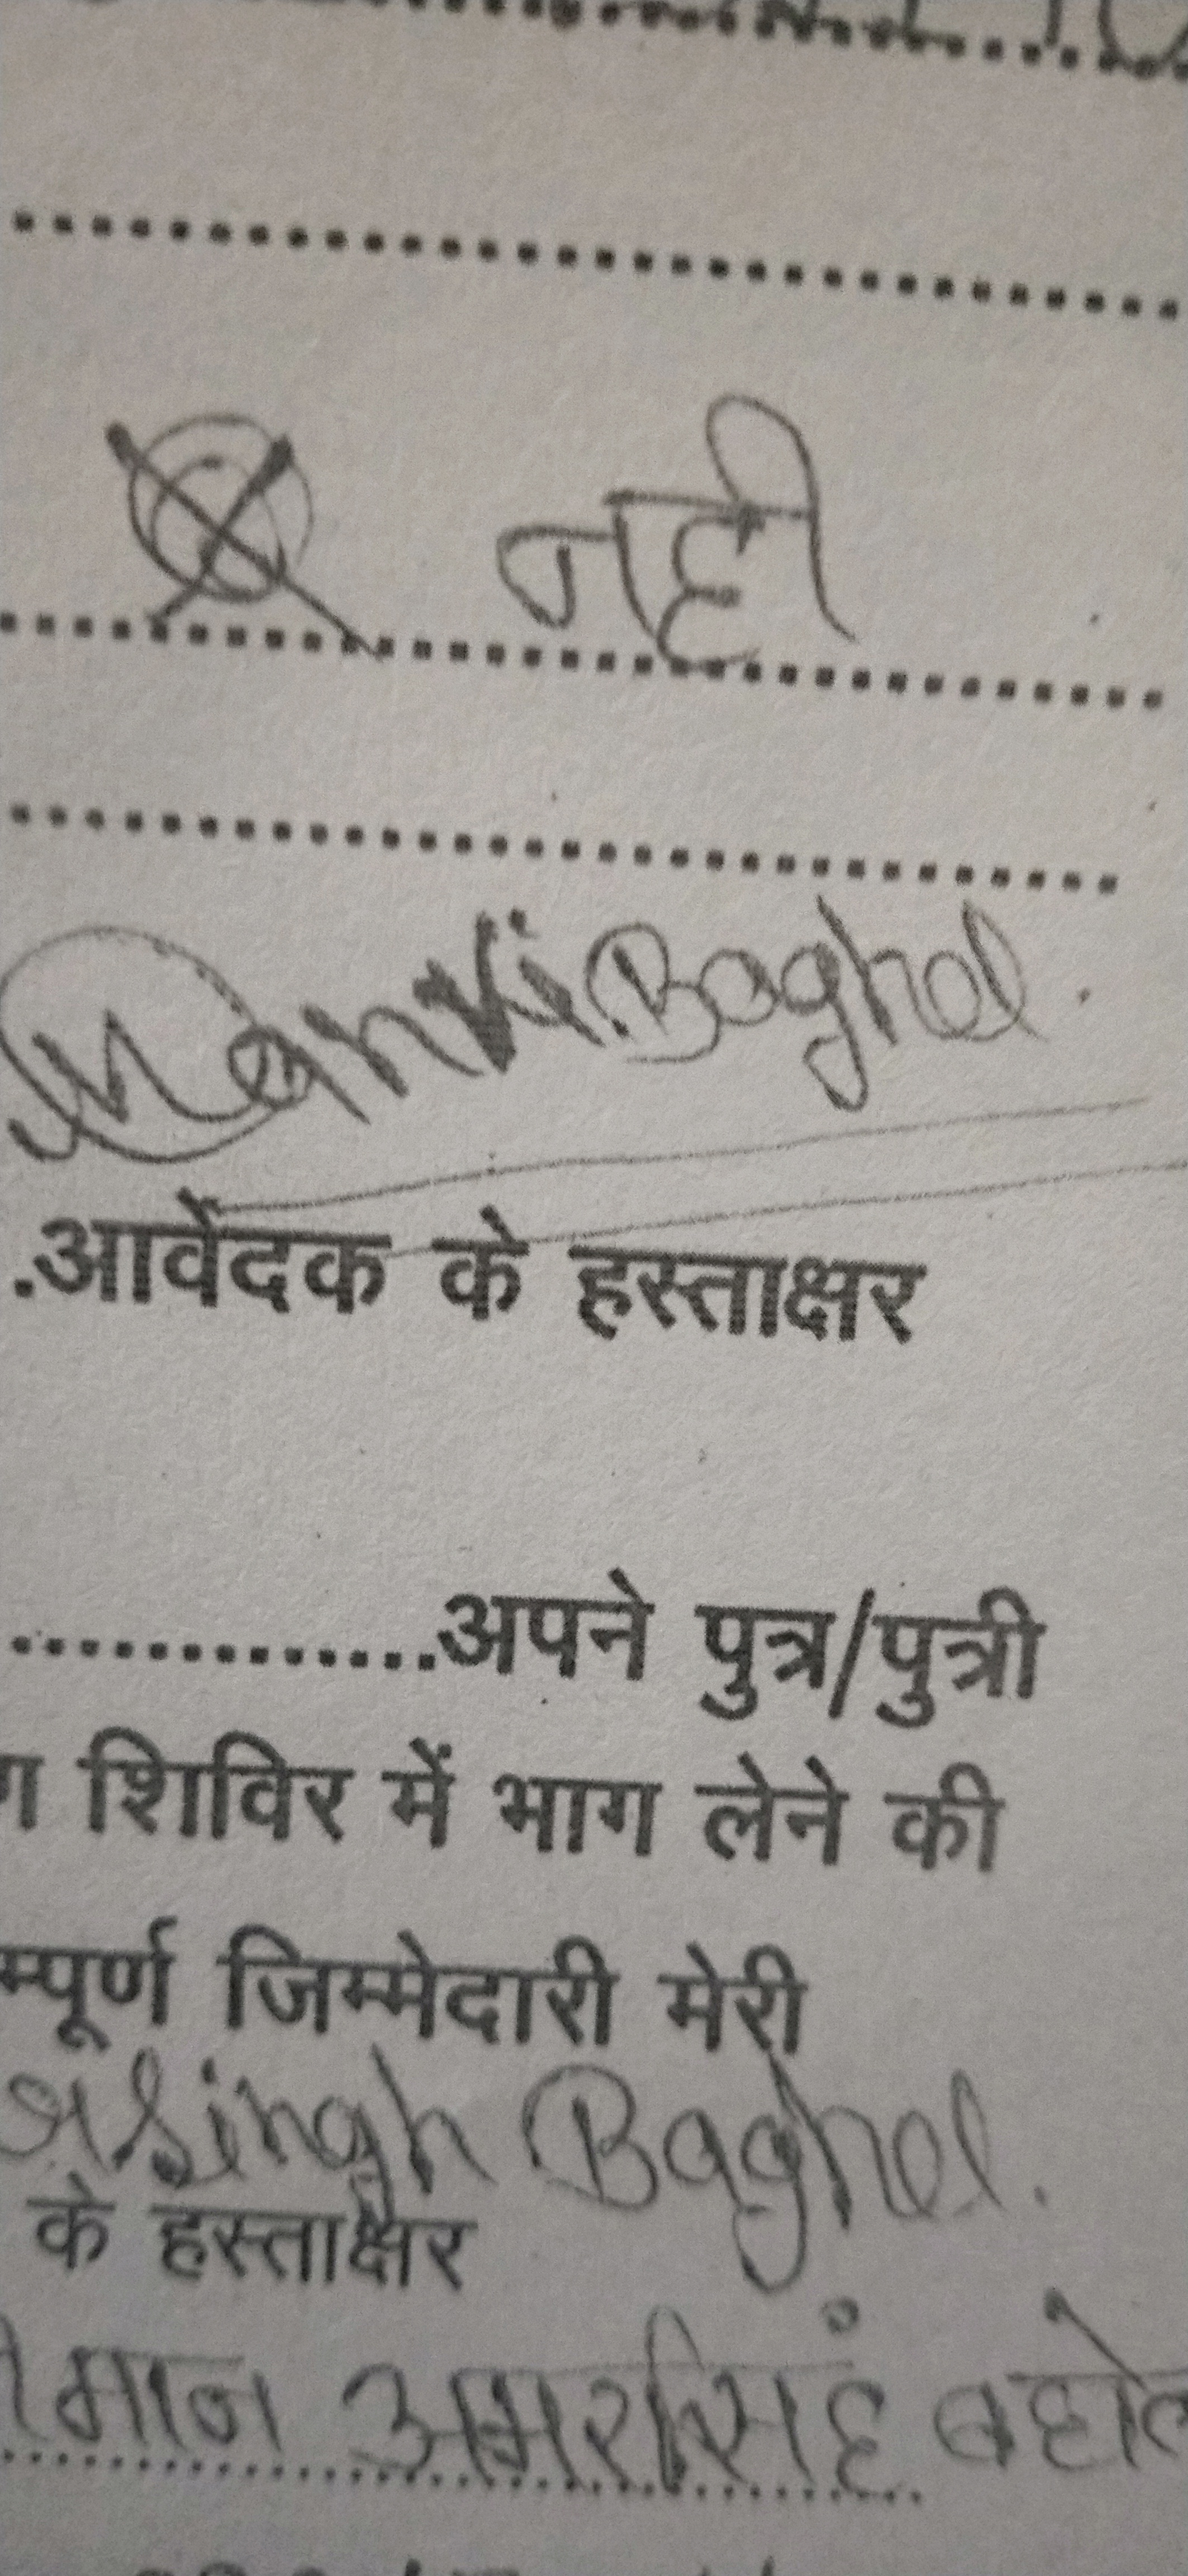 नही
Manvi Baghel.
.आर्वेदक के हस्ताक्षर
.............अपने पुत्र/पुत्री
शिविर में भाग लेने की
म्पूर्ण जिम्मेदारी मेरी
Singh Baghel.
के हस्ताक्षर
मान अमरसिंह बघेल